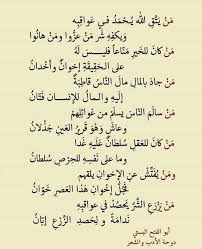 مَنْ يَتَّقِ اللهَ يُحْمَدُ فِي عَوَاقِبِهِ
وَيَكْفِهِ شَرَّ مَنْ عَزُّوا وَمَنْ هَانُوا
مَنْ كَانَ لِلْخَيْرِ مَنَّاعاً فَلَيْسَ لَهُ
عَلَى الحَقِيقَةِ إِخْوَانٌ وَأَخْدَانُ
مَنْ جَادَ بِالمَالِ مَالَ النَّاسُ قَاطِبَةً
إِلَيْهِ والمَالُ للإِنْسَانِ فَتَّانُ
مَنْ سَالَمَ النَّاسَ يَسْلَمْ مِنْ غَوَائِلِهِمْ
وعَاشَ وَهْوَ قَرِيرُ العَيْنِ جَذْلَانُ
مَنْ كَانَ لِلْعَقْلِ سُلْطَانٌ عَلَيْهِ غَدَا
وما عَلَى نَفْسِهِ لِلحِرْصِ سُلْطَانُ
ومَنْ يُفَتِّشْ عَنِ الإِخْوَانِ يَقْلِهِمُ
فَجُلُّ إِخْوَانِ هَذَا العَصْرِ خَوَّانُ
مَنْ يَزْرَعِ الشَّرَّ يَحْصُدْ فِي عَوَاقِبِهِ
نَدَامَةً وَلِحَصْدِ الزَّرْعِ إِبَّانُ
أبو الفتح البستي
دوحة الأدب والشعر